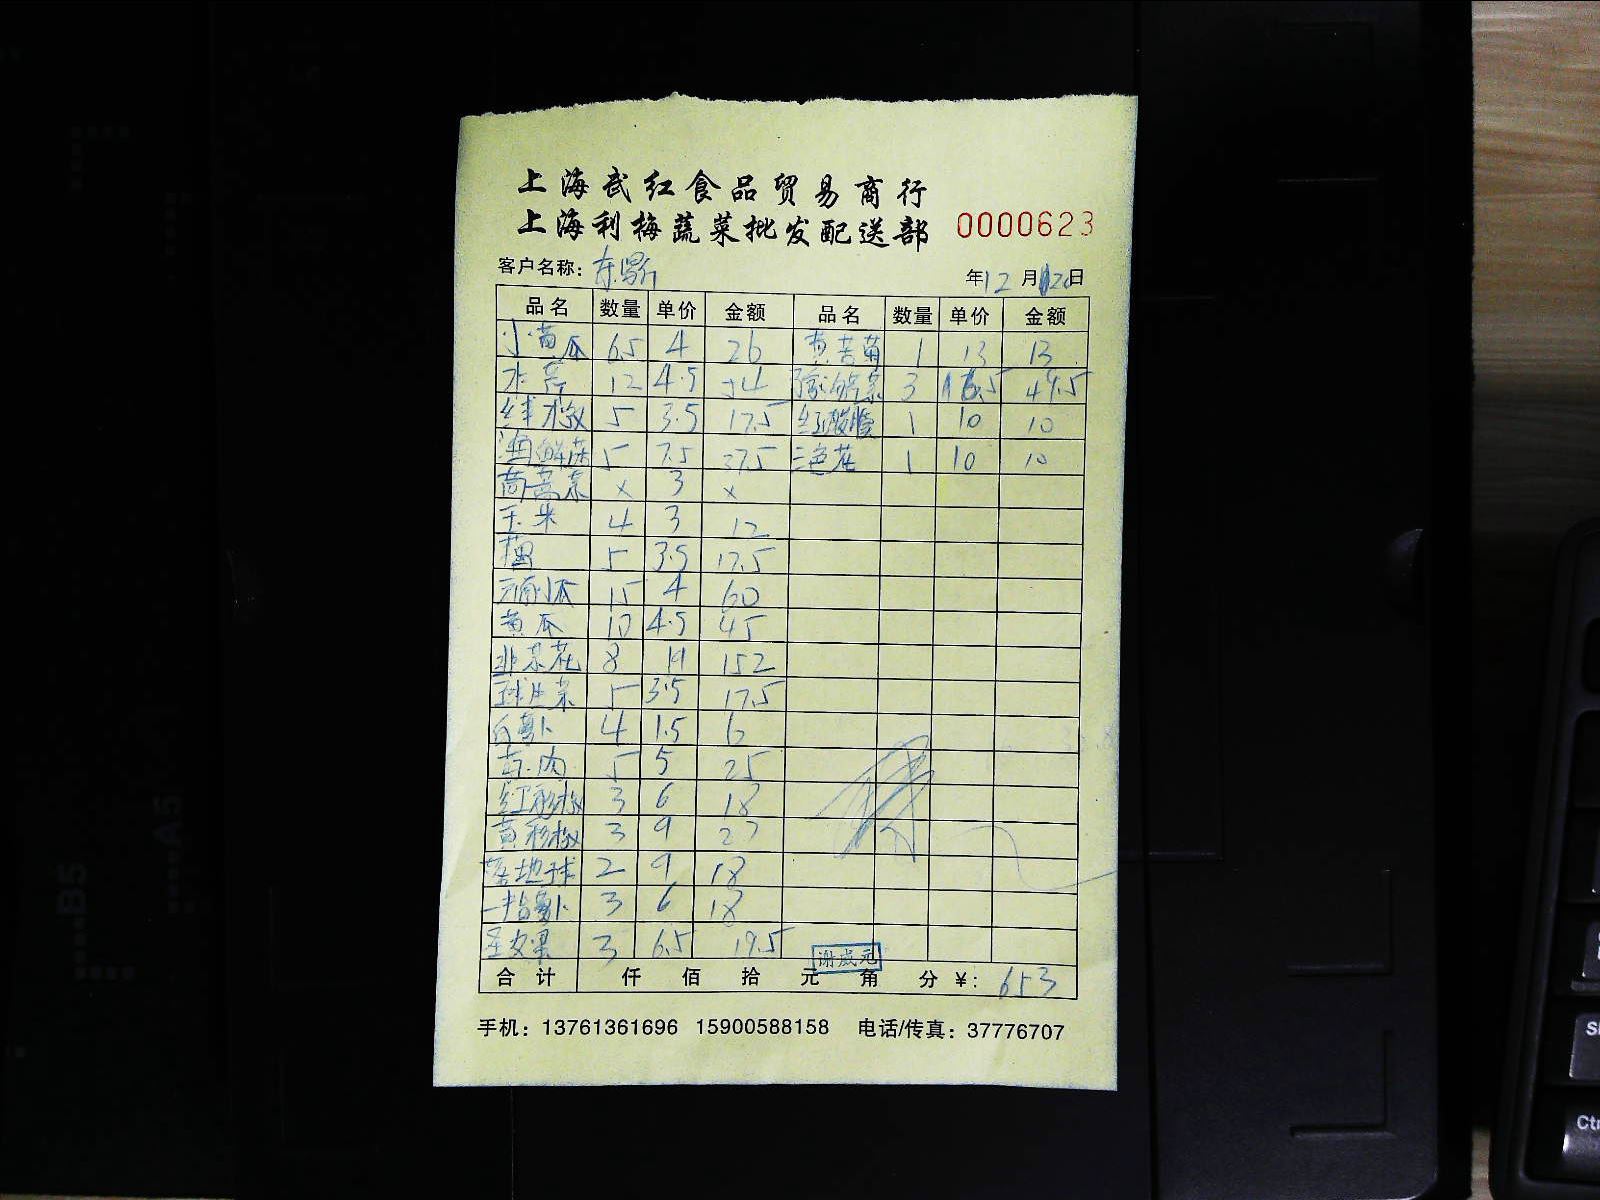 上海武红食品贸易商行
上海利梅蔬菜批发配送部 0000623
客户名称: 年12月 日
品名 数量 单价 金额 品名 数量 单价 金额
小黄瓜 6.5 4 26 黄苦菊 1 13 13
水芹 12 4.5 54 3 16.5 49.5
5 3.5 17.5 1 10 10
5 7.5 37.5 三色花 1 10 10
茼蒿菜 x 3 x
玉米 4 3 12
5 3.5 17.5
15 4 60
黄瓜 10 4.5 45
韭菜花 8 19 152
球生菜 5 3.5 17.5
白萝卜 4 1.5 6
5 5 25
红彩椒 3 6 18
黄彩椒 3 9 27
落地球 2 9 18
一指萝卜 3 6 18
圣女果 3 6.5 19.5
谢威元
合计 仟 佰 拾 元 角 分 ¥: 653
手机: 13761361696 15900588158 电话/传真: 37776707